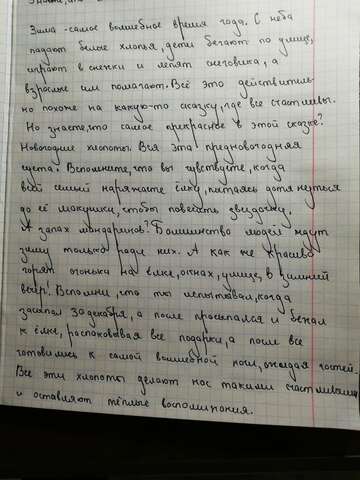 Зима - самое волшебное время года. С неба
падают белые хлопья, дети бегают по улице,
играют в снежки и лепят снеговика, а
взрослые им помогают. Всё это действитель-
но похоже на какую-то сказку, где все счастливы.
Но знаете, что самое прекрасное в этой сказке?
Новогодние хлопоты. Вся эта предновогодняя
суета. Вспомните, что вы чувствуете, когда
всей семьёй наряжаете ёлку, пытаясь дотянуться
до её макушки, чтобы повесить звёздочку.
А запах мандаринов? Большинство людей ждут
зиму только ради них. А как же красиво
горят огоньки на ёлке, окнах, улице, в зимний
вечер! Вспомни, что ты испытывал, когда
засыпал 30 декабря, а после просыпался и бежал
к ёлке, распаковывая все подарки, а после все
готовились к самой волшебной ночи, ожидая гостей.
Все эти хлопоты делают нас такими счастливыми
и оставляют тёплые воспоминания.